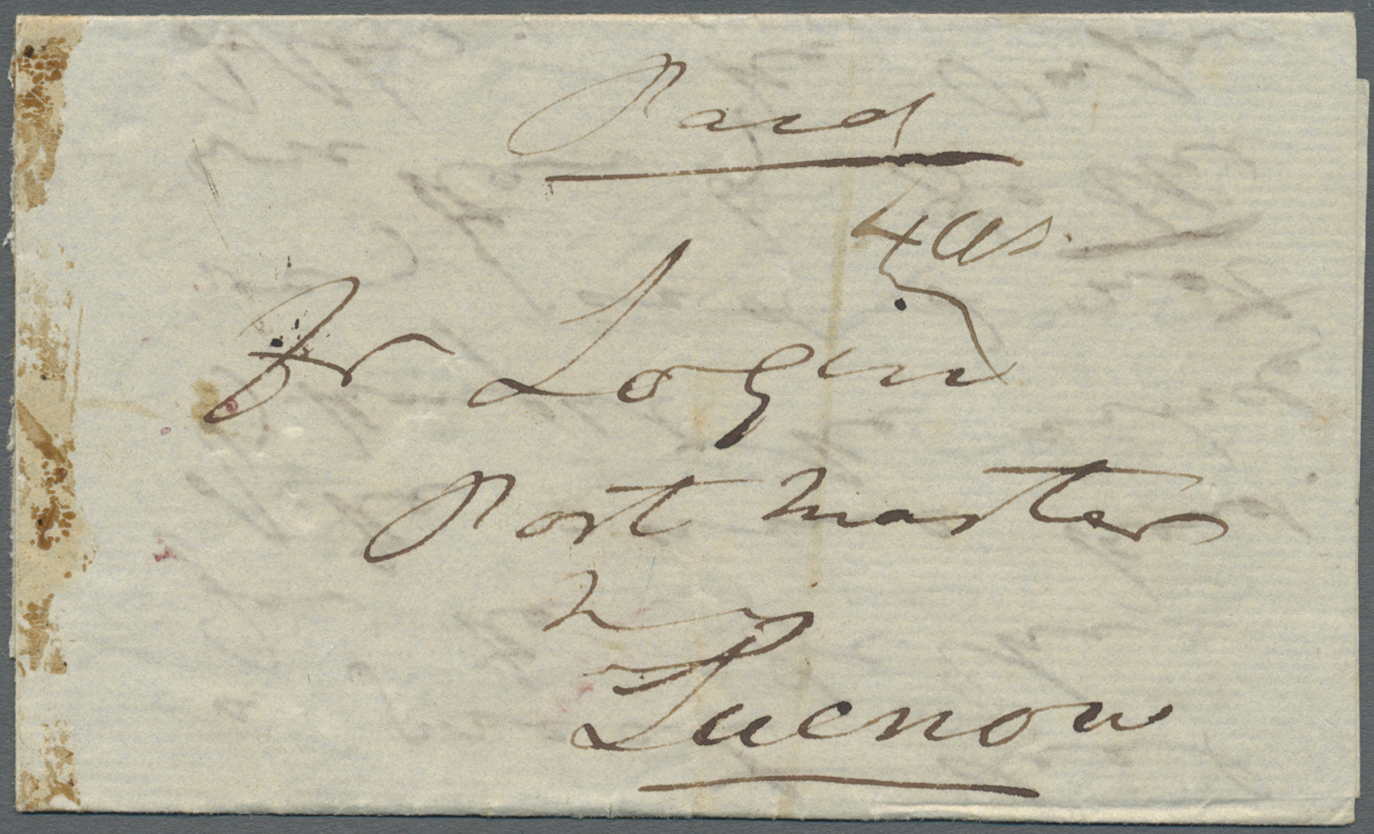 Paid
4 as
Dr Login
Post Master
Lucnow